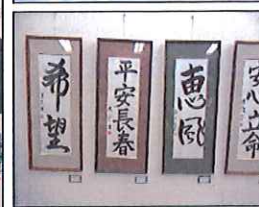 希望
平安長春
恵風
安心立命